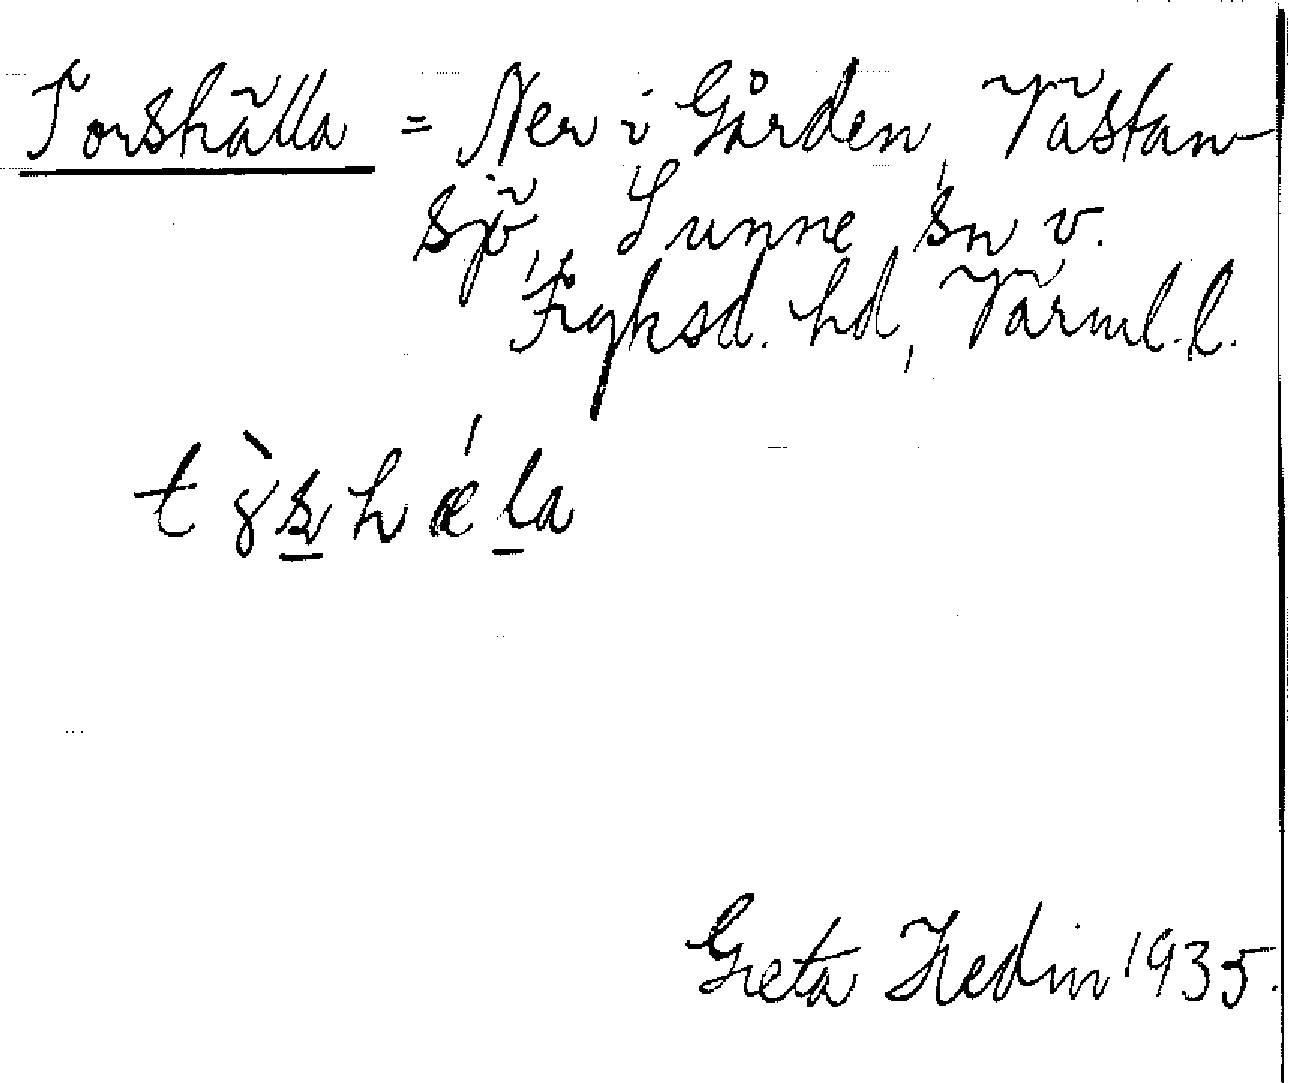 Torshälla = Ner i Gården, Västan-
sjö, Sunne sn v.
Fryksd. hd, Värml. l.
tɤ̀s̱hǽḻa
Greta Hedin 1935.